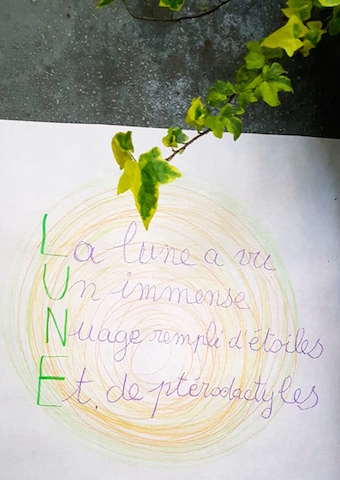 La lune a vu
Un immense
Nuage rempli d'étoiles
Et. de ptérodactyles